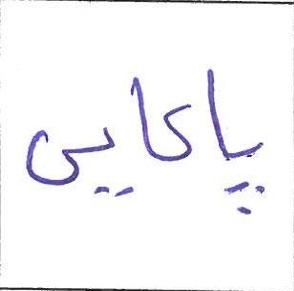 پاکایی